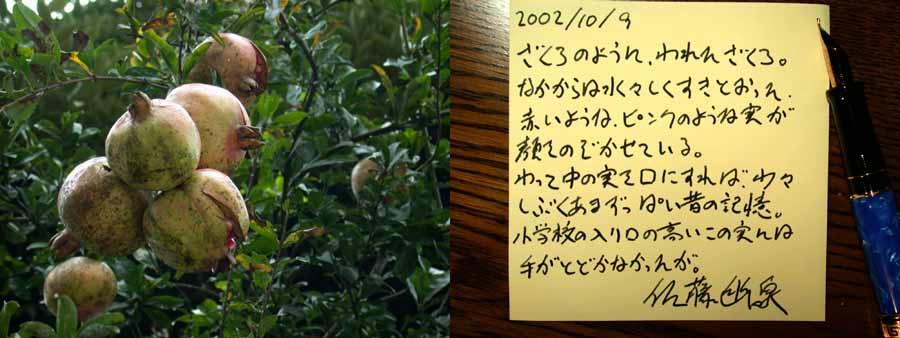 2002/10/9
ざくろのように、われたざくろ。
なかからは水々しくすきとおった、
赤いような、ピンクのような実が
顔をのぞかせている。
わって中の実を口にすれば、少々
しぶくあまずっぱい昔の記憶。
小学校の入り口の高いこの実には
手がとどかなかったが。
佐藤幽泉